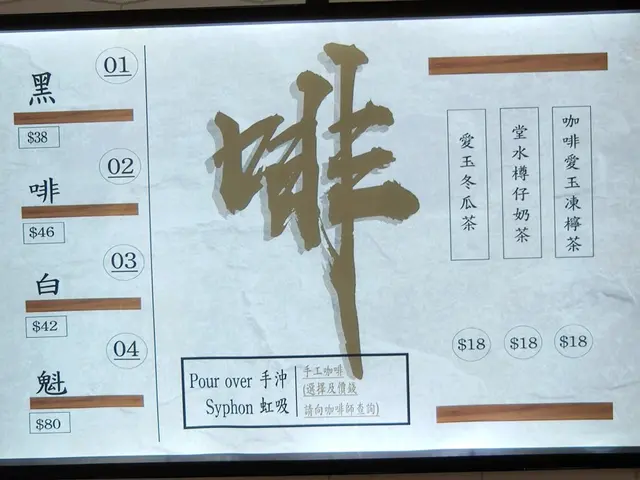 01
黑
$38
02
啡
$46
03
白
$42
04
魁
$80
啡
Pour over 手沖
Syphon 虹吸
手工咖啡
(選擇及價錢
請向咖啡師查詢)
咖啡愛玉凍檸茶
堂水樽仔奶茶
愛玉冬瓜茶
$18
$18
$18